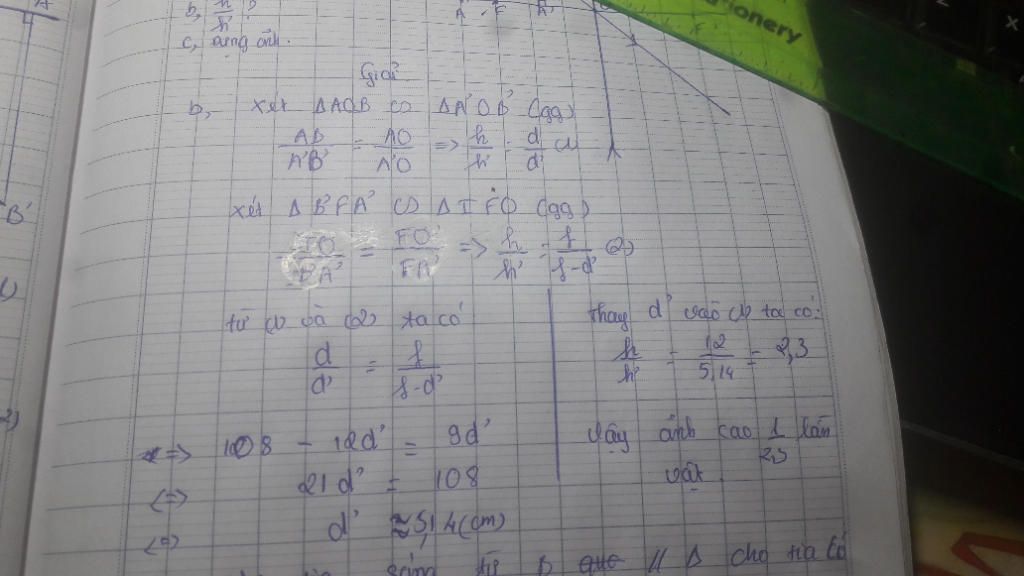 A
b, h ?
h'
A F A'
tionery
c, dựng ảnh.
Giải
b, xét ΔAOB ∽ ΔA'OB' (gg)
AB/A'B' = AO/A'O => h/h' = d/d' (1)
B'
xét ΔB'FA' ∽ ΔIFO (gg)
FO/FA' = FO/FA' => h/h' = f/f-d' (2)
từ (1) và (2) ta có
d/d' = f/f-d'
<=> 108 - 12d' = 9d'
<=> 21d' = 108
<=> d' ≈ 5,14(cm)
thay d' vào (1) ta có:
h/h' = 12/5,14 = 2,3
Vậy ảnh cao 1/2,3 lần
vật.
B // Δ cho tia ló